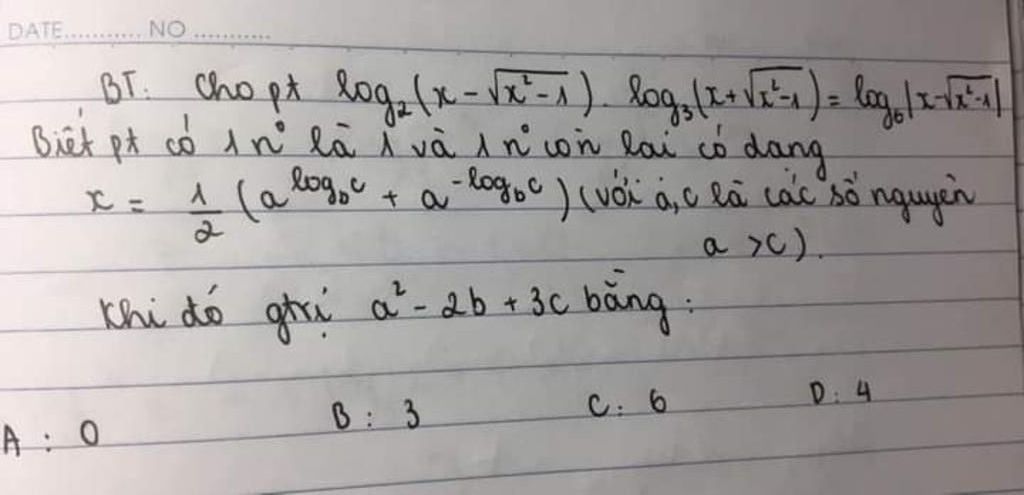 DATE........... NO ...........
BT. Cho pt log₂(x - √(x²-1)). log₃(x+√(x²-1)) = log₆|x-√(x²-1)|
Biết pt có 1 n° là 1 và 1 n° còn lại có dang
x = 1/2 (a^(log_b c) + a^(-log_b c)) (với a, c là các số nguyên
a > c).
Khi đó gtrị a² - 2b + 3c bằng :
A : 0 B : 3 C : 6 D : 4